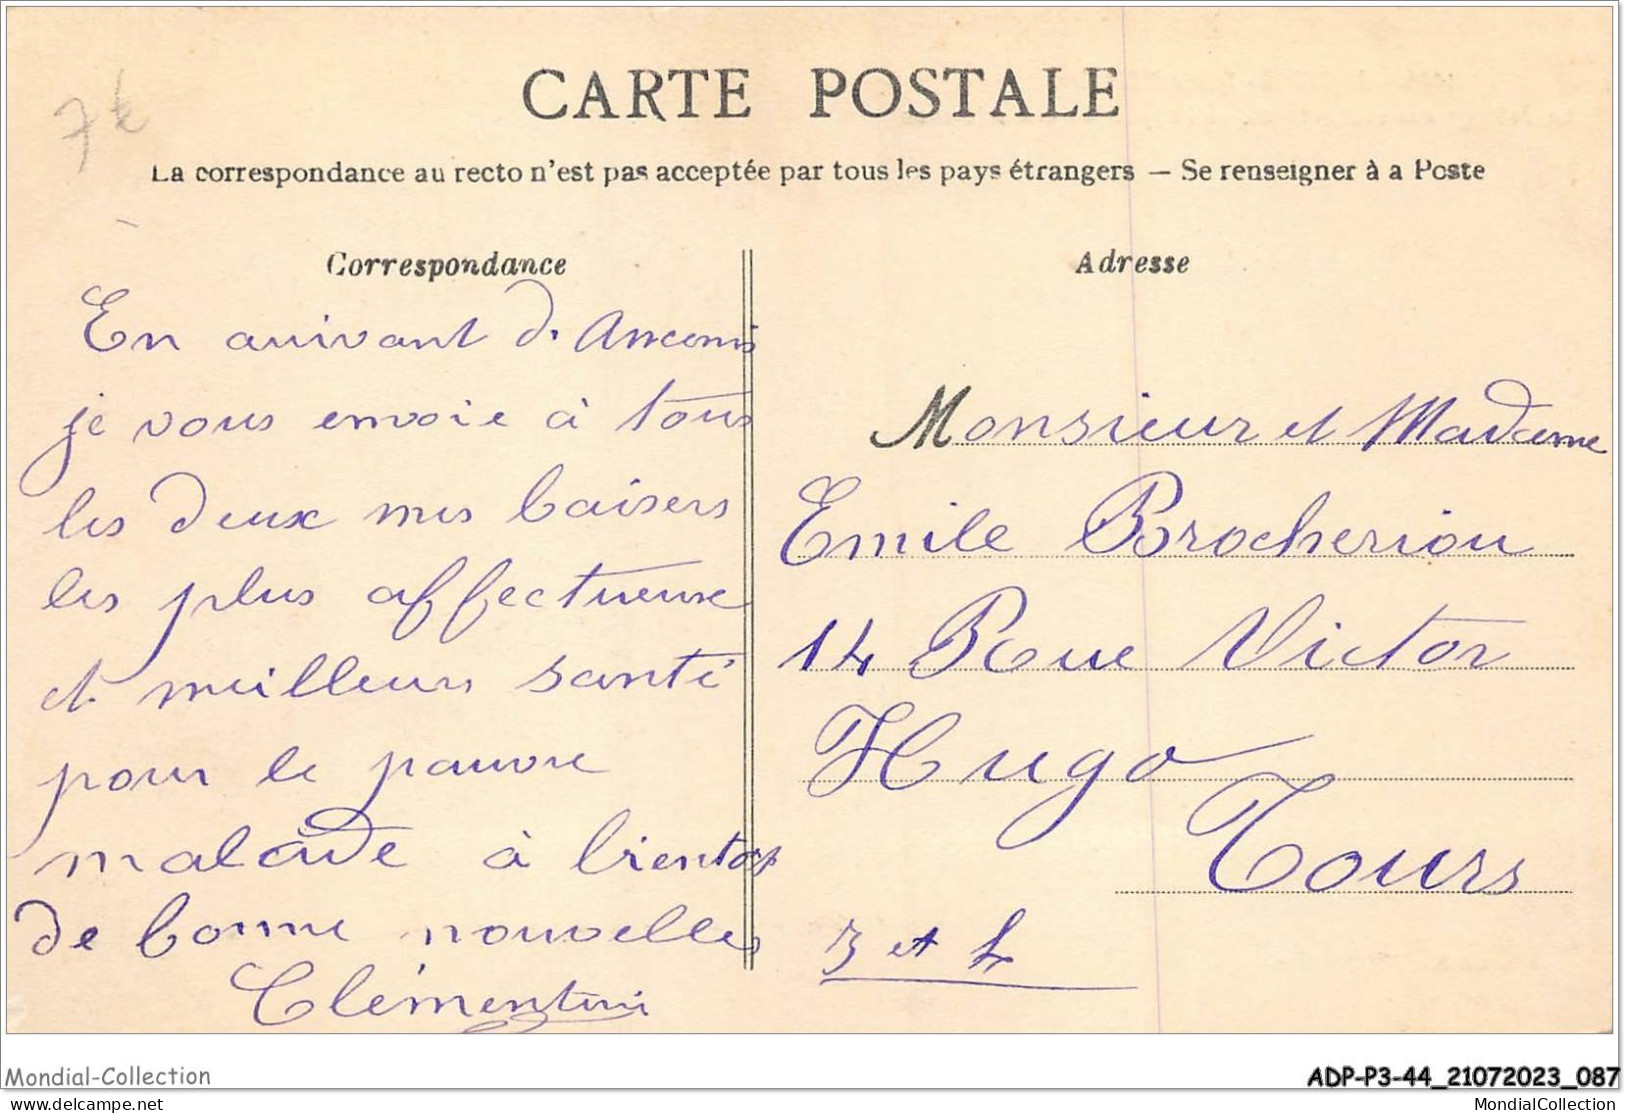 7 €
CARTE POSTALE
La correspondance au recto n'est pas acceptée par tous les pays étrangers — Se renseigner à a Poste
Correspondance
En arrivant d'Ancenis
je vous envoie à tous
les deux mes baisers
les plus affectueux
et meilleur santé
pour le pauvre
malade à bientot
de bonne nouvelles
Clémentine
Adresse
Monsieur et Madame
Emile Brocheriou
14 Rue Victor
Hugo
Tours
3 et 4
Mondial-Collection
ADP-P3-44_21072023_087
delcampe.net
MondialCollection